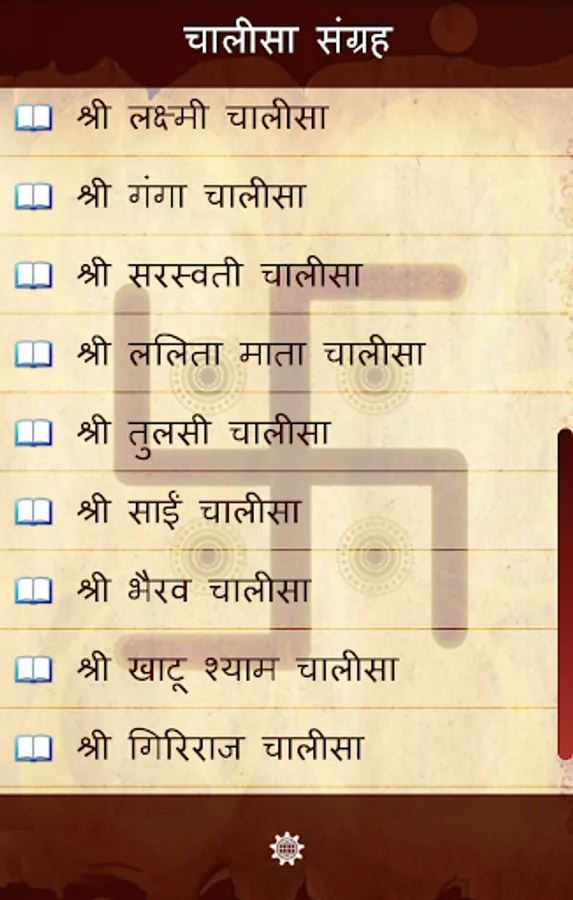 चालीसा संग्रह
श्री लक्ष्मी चालीसा
श्री गंगा चालीसा
श्री सरस्वती चालीसा
श्री ललिता माता चालीसा
श्री तुलसी चालीसा
श्री साईं चालीसा
श्री भैरव चालीसा
श्री खाटू श्याम चालीसा
श्री गिरिराज चालीसा